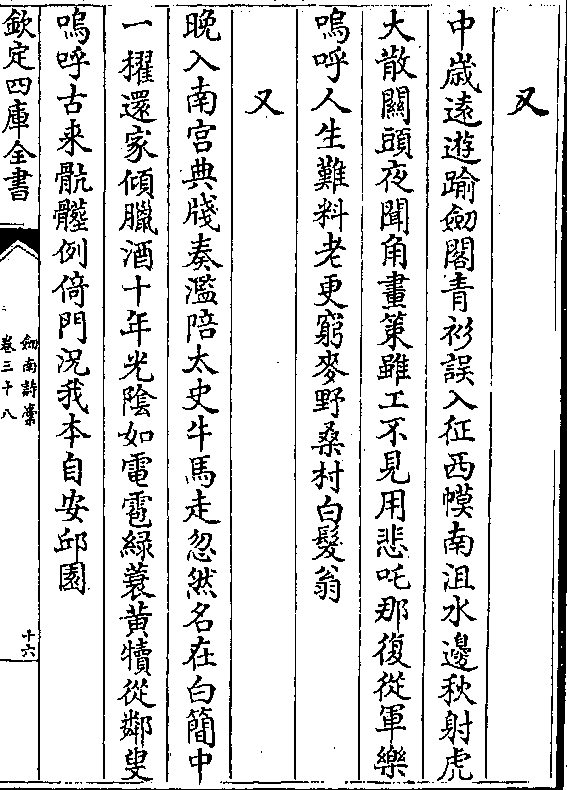 又
中歲遠遊踰劒閣青衫誤入征西幙南沮水邊秋射虎
大散關頭夜聞角畫策雖工不見用悲吒那復從軍樂
嗚呼人生難料老更窮麥野桑村白髮翁
又
晚入南宫典牋奏濫陪太史牛馬走忽然名在白簡中
一擢還家傾臘酒十年光陰如電雹綠蓑黄犢從鄰叟
嗚呼古来骯髒例倚門况我本自安邱園
欽定四庫全書
劒南詩稾
卷三十八
十六